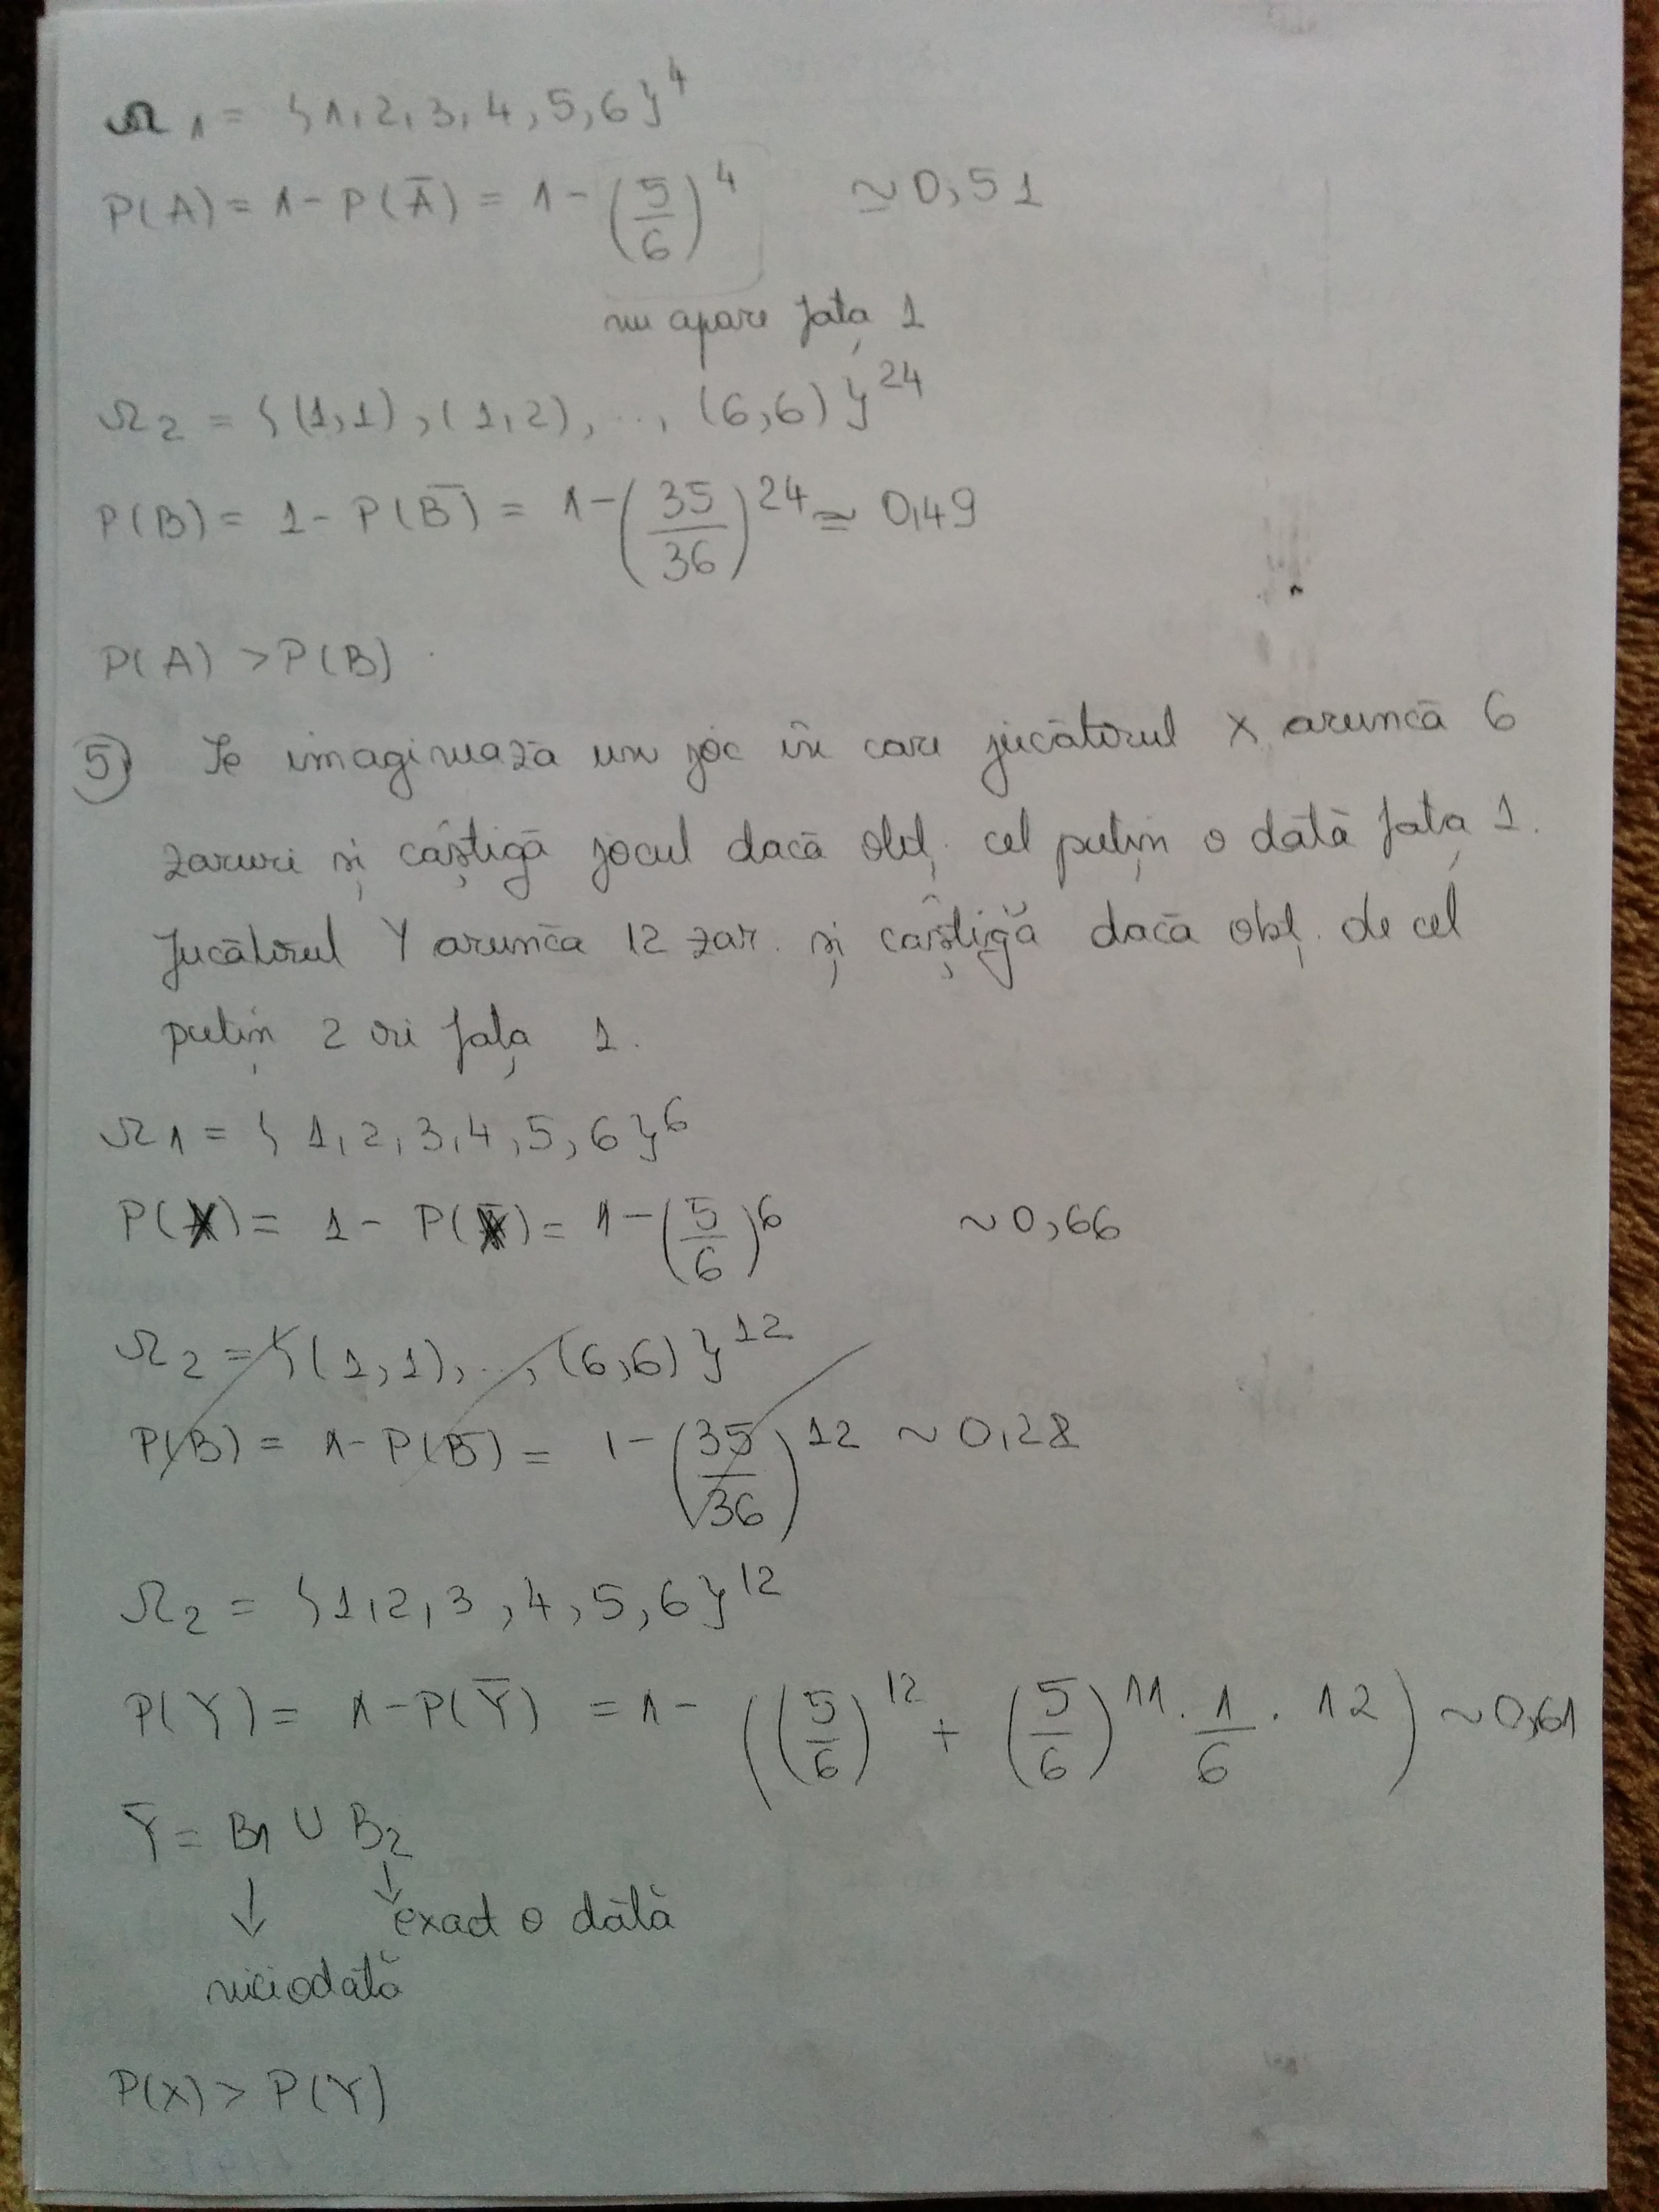 Ω1 = {1,2,3,4,5,6}^4
P(A) = 1 - P(Ā) = 1 - (5/6)^4 ≃ 0,51
nu apare fața 1
Ω2 = {(1,1), (1,2), ..., (6,6)}^24
P(B) = 1 - P(B̄) = 1 - (35/36)^24 ≃ 0,49
P(A) > P(B)
5) Se imaginează un joc în care jucătorul X aruncă 6
zaruri și câștigă jocul dacă obț. cel puțin o dată fața 1.
Jucătorul Y aruncă 12 zar. și câștigă dacă obț. de cel
puțin 2 ori fața 1.
Ω1 = {1,2,3,4,5,6}^6
P(X) = 1 - P(X̄) = 1 - (5/6)^6 ~ 0,66
Ω2 = {(1,1), ..., (6,6)}^12
P(B) = 1 - P(B̄) = 1 - (35/36)^12 ~ 0,28
Ω2 = {1,2,3,4,5,6}^12
P(Y) = 1 - P(Ȳ) = 1 - ((5/6)^12 + (5/6)^11 · 1/6 · 12) ~ 0,61
Ȳ = B1 ∪ B2
↓ ↓
exact o dată
niciodată
P(X) > P(Y)